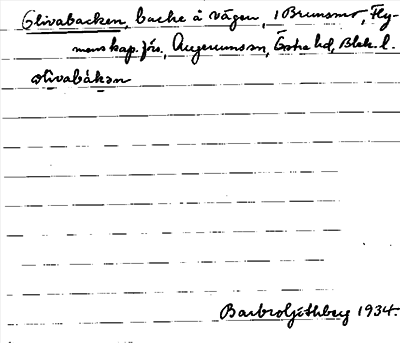 Olivabacken, backe å vägen, i Brunsmo, Fly-
menskap.förs. Augerums sn, Östra hd, Blek. l.
olivabákan
Barbro Ljethberg 1934.